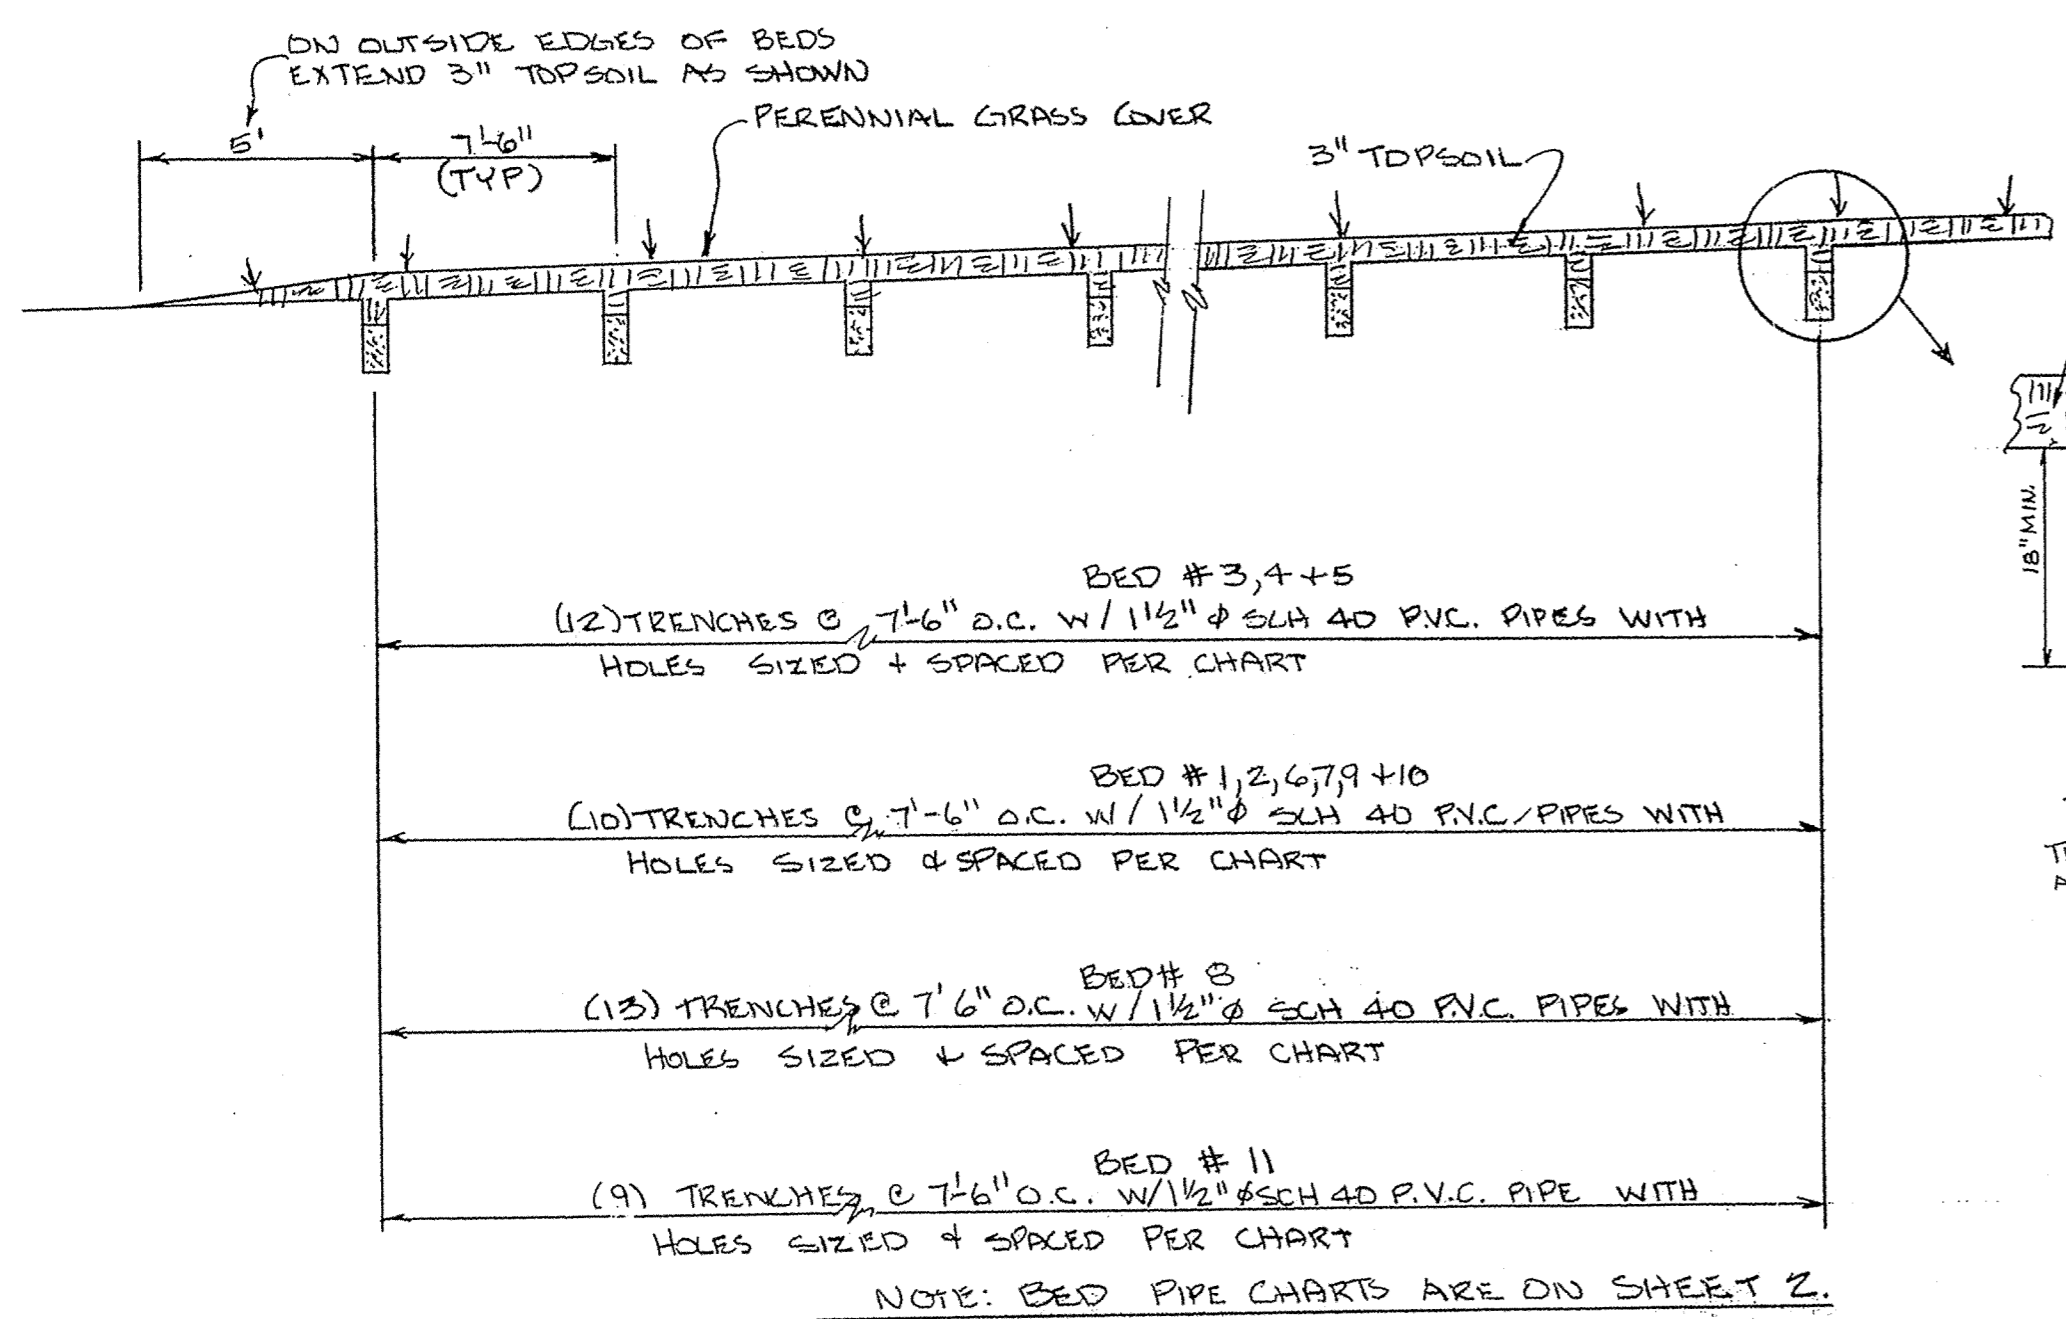 ON OUTSIDE EDGES OF BEDS
EXTEND 3" TOPSOIL AS SHOWN
PERENNIAL GRASS COVER
5'
7'-6"
(TYP)
3" TOPSOIL
18" MIN.
BED #3,4+5
(12) TRENCHES @ 7'-6" O.C. W/ 1 1/2" ø SCH 40 P.V.C. PIPES WITH
HOLES SIZED & SPACED PER CHART
BED #1,2,6,7,9+10
(10) TRENCHES @ 7'-6" O.C. W/ 1 1/2" ø SCH 40 P.V.C. PIPES WITH
HOLES SIZED & SPACED PER CHART
BED# 8
(13) TRENCHES @ 7'6" O.C. W/ 1 1/2" ø SCH 40 P.V.C. PIPES WITH
HOLES SIZED & SPACED PER CHART
BED # 11
(9) TRENCHES @ 7'-6" O.C. W/ 1 1/2" ø SCH 40 P.V.C. PIPE WITH
HOLES SIZED & SPACED PER CHART
NOTE: BED PIPE CHARTS ARE ON SHEET 2.